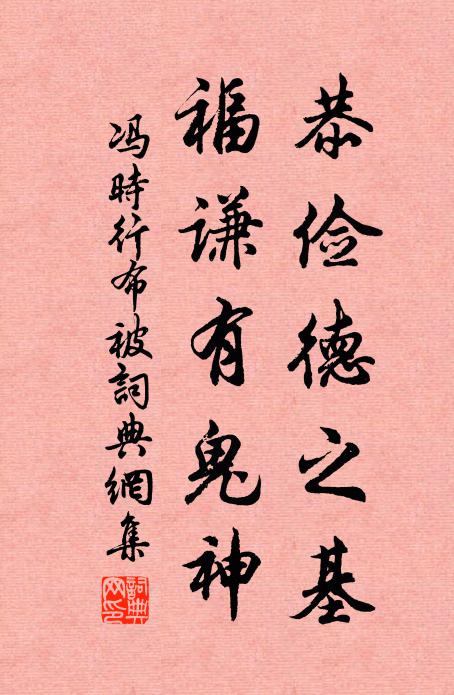 恭俭德之基
福谦有鬼神
冯時行布被詞典網集
詞典
网印